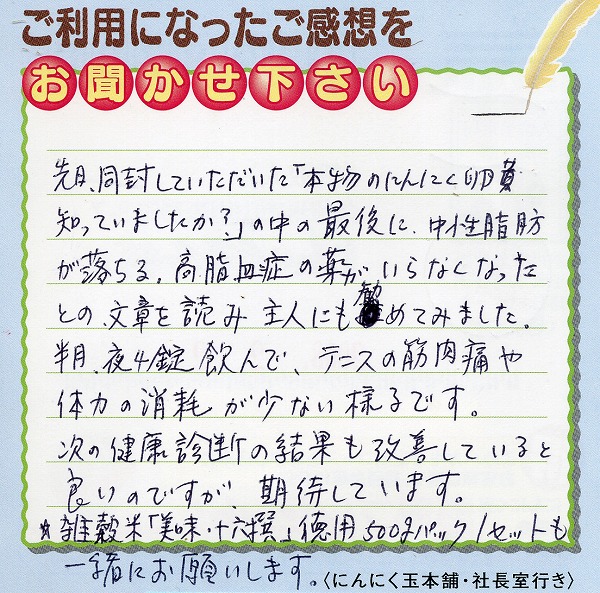 ご利用になったご感想を
お聞かせ下さい
先月、同封していただいた「本物のにんにく卵黄
知っていましたか?」の中の最後に、中性脂肪
が落ちる、高脂血症の薬がいらなくなった
との文章を読み主人にも勧めてみました。
半月、夜4錠飲んで、テニスの筋肉痛や
体力の消耗が少ない様子です。
次の健康診断の結果も改善していると
良いのですが、期待しています。
☆雑穀米「美味・十六撰」徳用500gパック1セットも
一緒にお願いします。
〈にんにく玉本舗・社長室行き〉